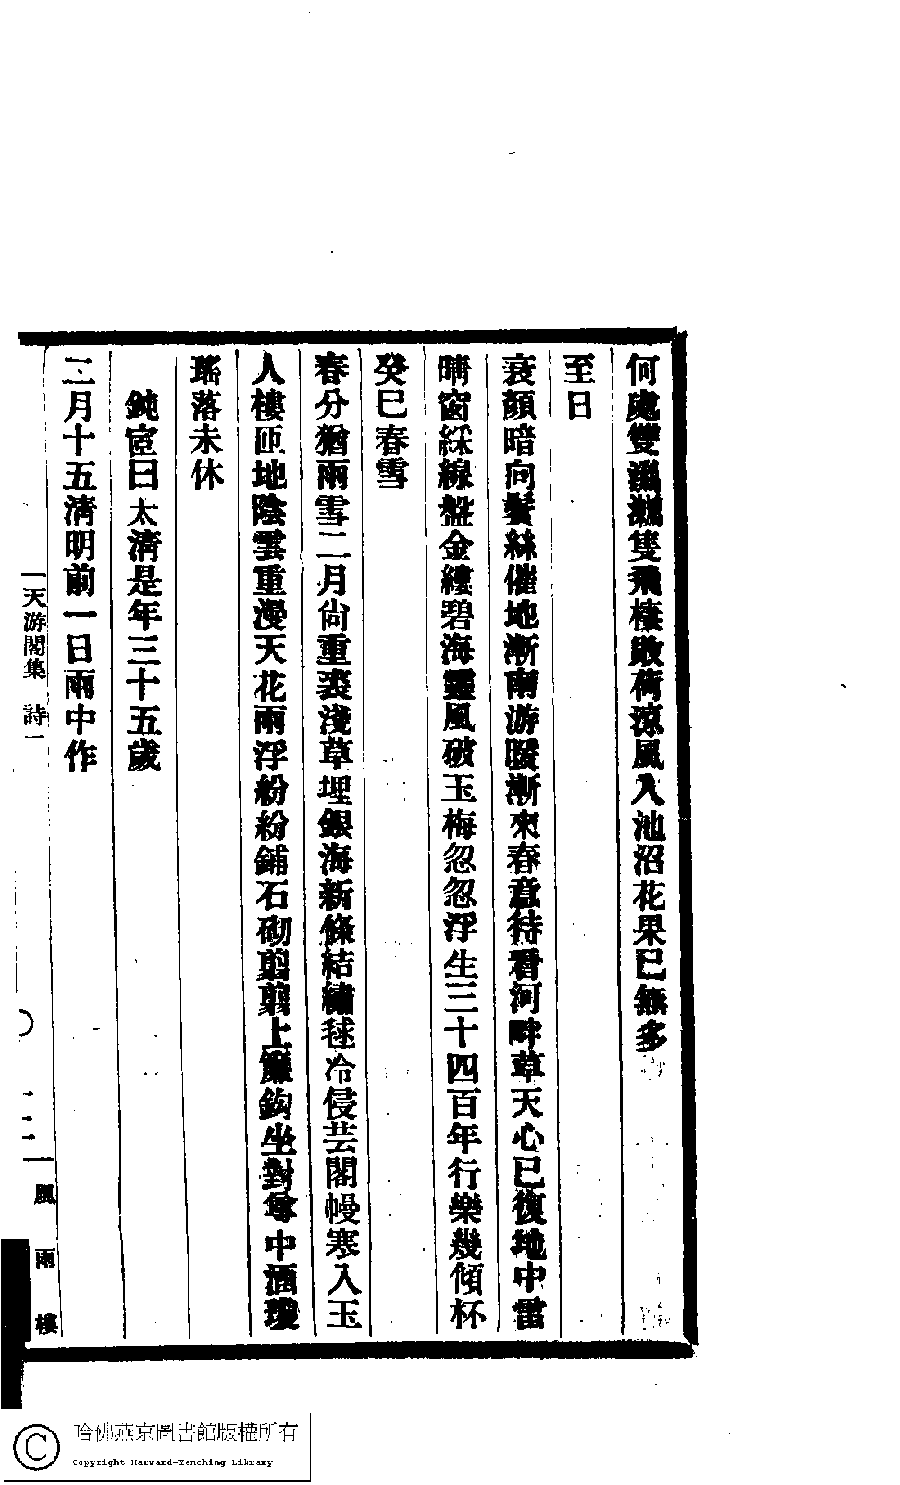 何處雙鸂鷘隻飛棲敗荷涼風入池沼花果已無多
至日
衰顏暗向鬢絲催地漸南游暖漸來春意待看河畔草天心已復地中雷
晴窗綵線盤金縷碧海靈風破玉梅忽忽浮生三十四百年行樂幾傾杯
癸巳春雪
春分猶雨雪二月尙重裘淺草埋銀海新條結繡毬冷侵芸閣幔寒入玉
人樓匝地陰雲重漫天花雨浮紛紛鋪石砌剪剪上簾鈎坐對尊中酒瓊
瑤落未休
鈍宧曰太清是年三十五歲
二月十五清明前一日雨中作
天游閣集 詩一
二
風雨樓
哈佛燕京圖書館版權所有
Copyright Harvard-Yenching Library